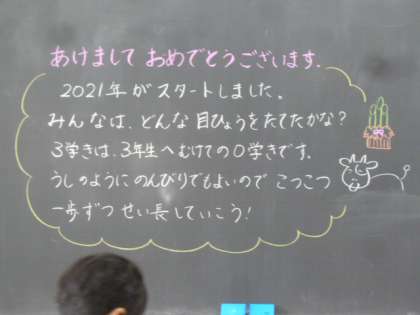 あけまして おめでとうございます.
2021年がスタートしました。
みんなは、どんな目ひょうをたてたかな?
3学きは、3年生へむけての0学きです。
うしのようにのんびりでもよいので こつこつ
一歩ずつ せい長していこう!